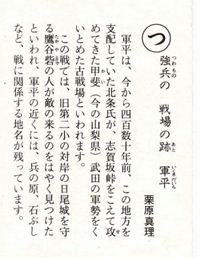 つ
強兵の　戦場の跡　軍平
つわもの　いくさば　あと　いまだいら
栗原真理
軍平は、今から四百数十年前、この地方を
支配していた北条氏が、志賀坂峠をこえて攻
めてきた甲斐（今の山梨県）武田の軍勢をく
いとめた古戦場といわれます。
この戦では、旧第二小の対岸の日尾城を守
る鷹谷砦の人が敵の来るのをはやく見つけた
といわれ、軍平の近くには、兵の原、石ぶし
など、戦に関係する地名が残っています。